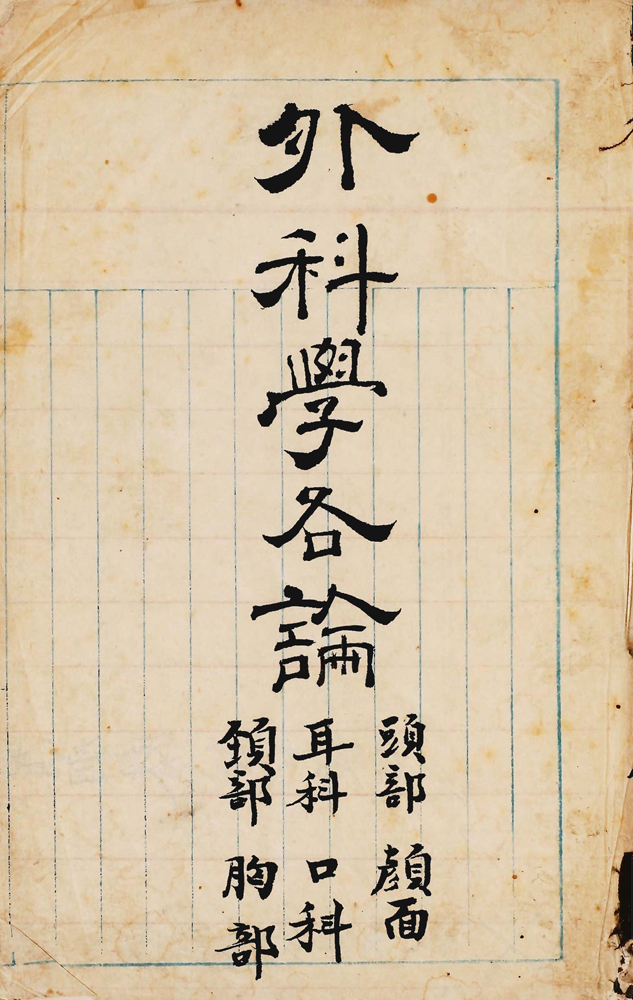 外科學各論
頭部 顔面
耳科 口科
頸部 胸部